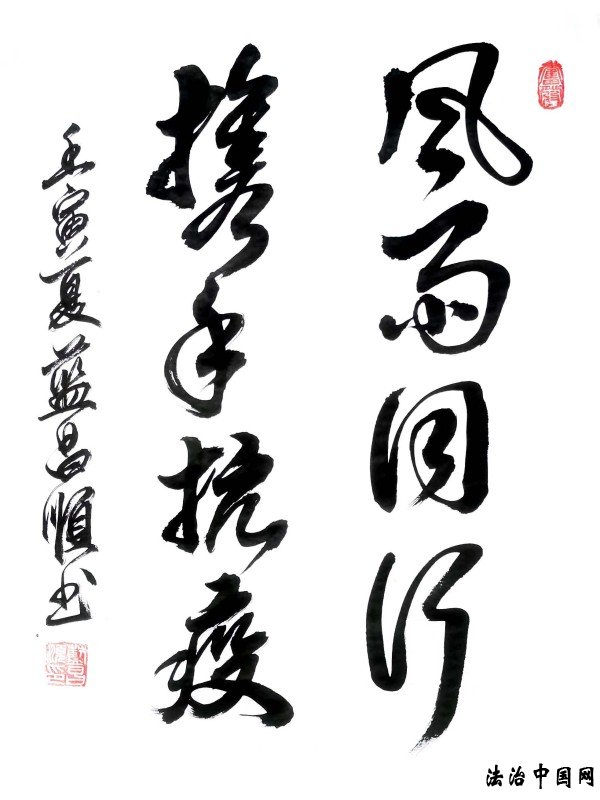 风雨同行
携手抗疫
壬寅夏蓝昌顺书
法治中国网